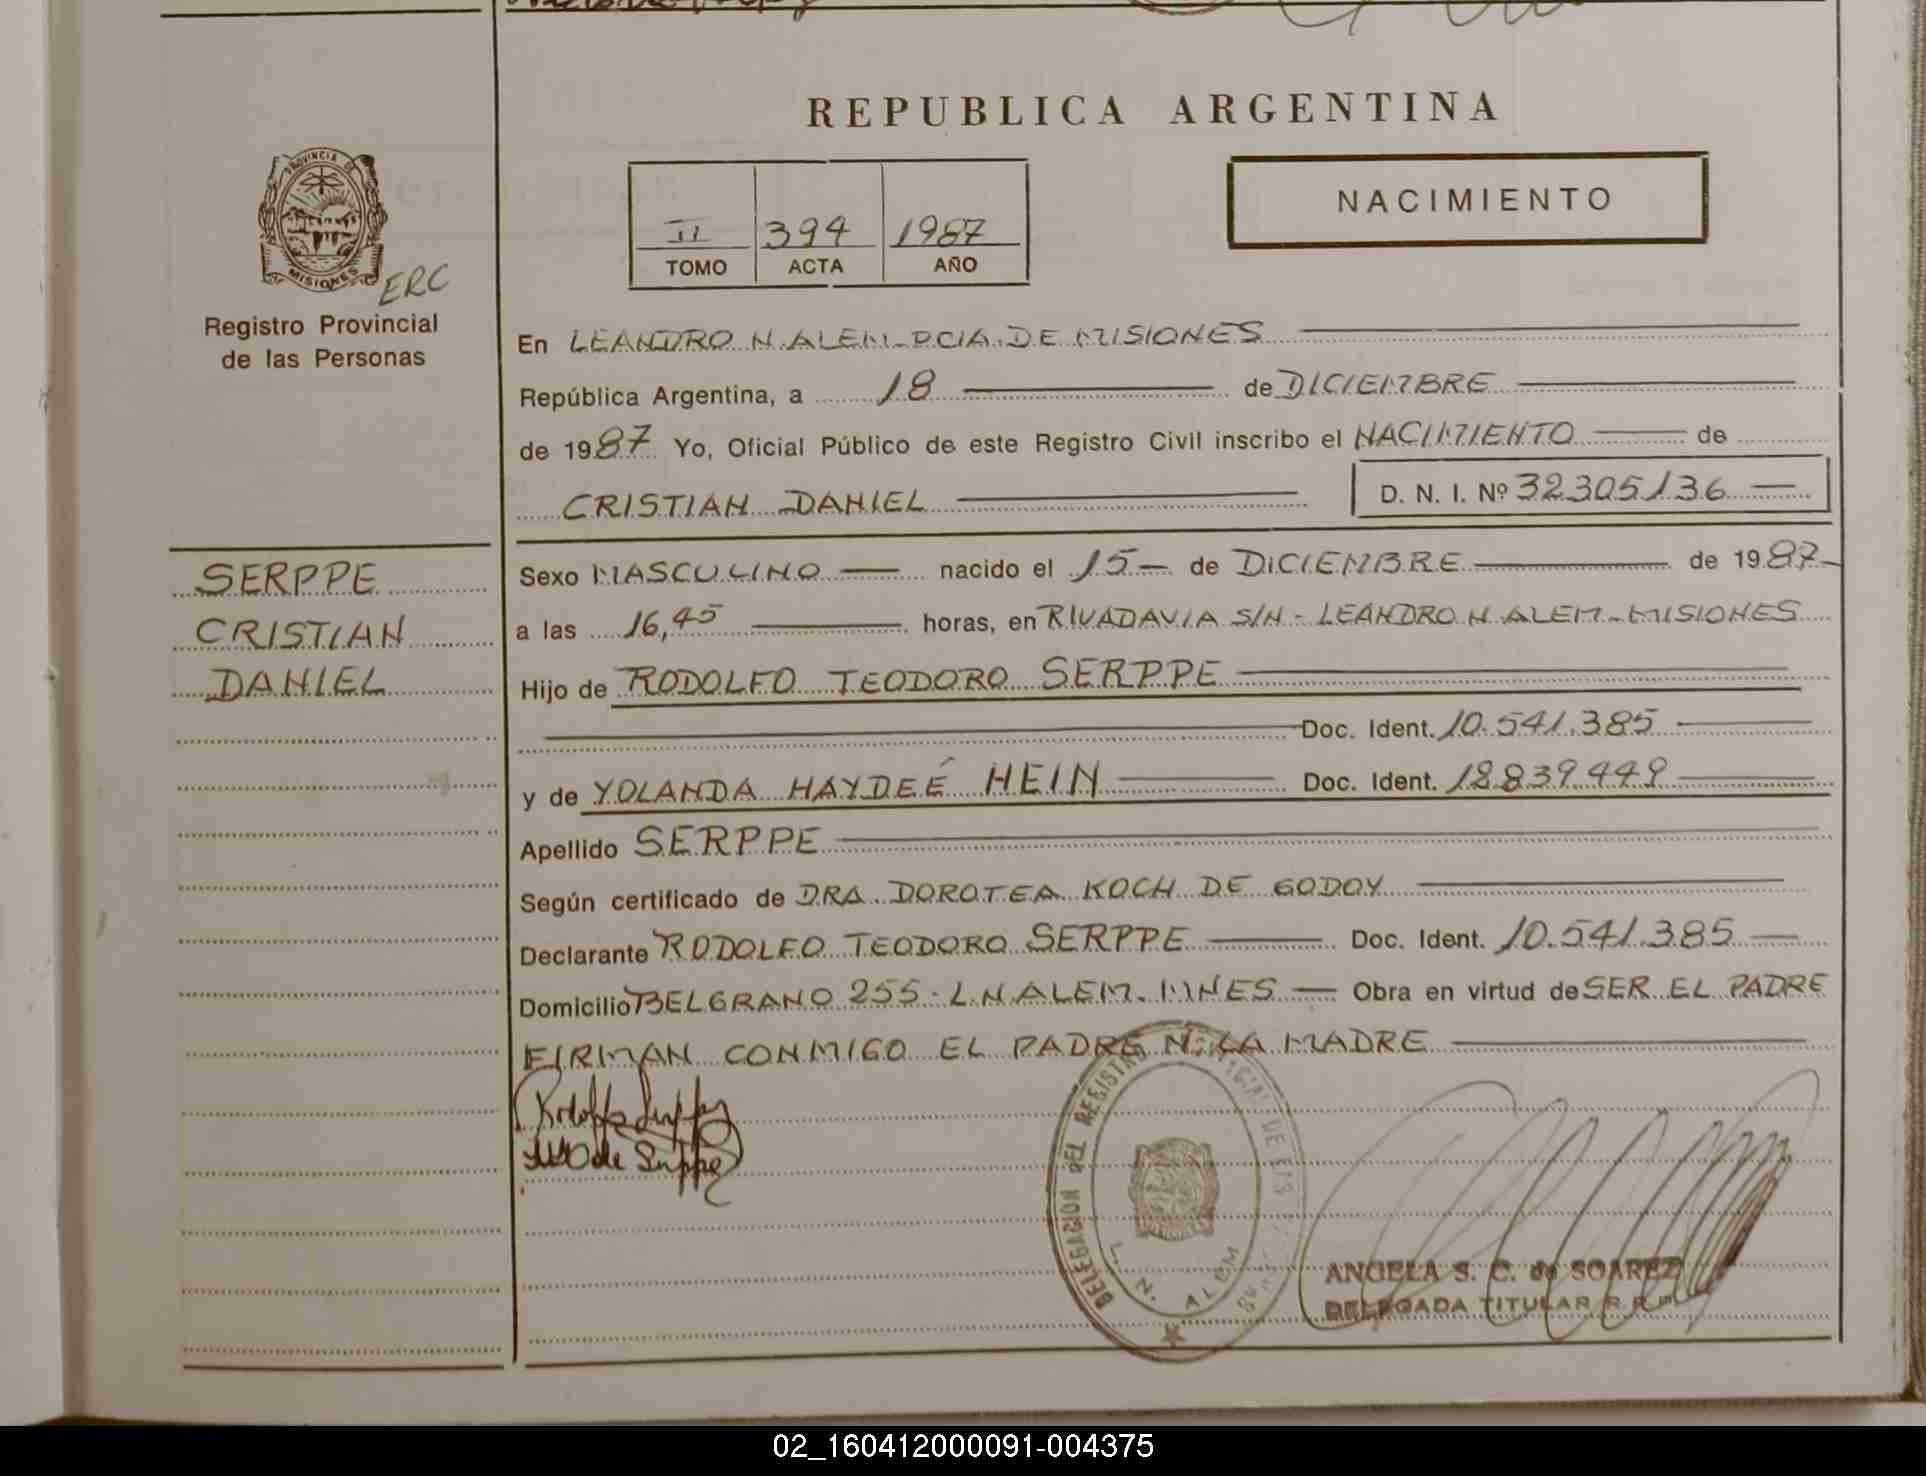 REPUBLICA ARGENTINA
PROVINCIA DE
MISIONES
ERC
Registro Provincial
de las Personas
II 394 1987
TOMO ACTA AÑO
NACIMIENTO
En LEANDRO N. ALEM - PCIA. DE MISIONES
República Argentina, a 18 de DICIEMBRE
de 1987 Yo, Oficial Público de este Registro Civil inscribo el NACIMIENTO de
CRISTIAN DANIEL D. N. I. Nº 32.305.136
SERPPE
CRISTIAN
DANIEL
Sexo MASCULINO nacido el 15 de DICIEMBRE de 1987
a las 16,45 horas, en RIVADAVIA S/N - LEANDRO N. ALEM - MISIONES
Hijo de RODOLFO TEODORO SERPPE
Doc. Ident. 10.541.385
y de YOLANDA HAYDEÉ HEIN Doc. Ident. 18.839.449
Apellido SERPPE
Según certificado de DRA. DOROTEA KOCH DE GODOY
Declarante RODOLFO TEODORO SERPPE Doc. Ident. 10.541.385
Domicilio BELGRANO 255 - L.N. ALEM. MNES Obra en virtud de SER EL PADRE
FIRMAN CONMIGO EL PADRE LA MADRE
DELEGACION DEL REGISTRO DE LAS
L. N. ALEM
ANGELA S. C. de SOAREZ
DELEGADA TITULAR R.R.P.
02_160412000091-004375